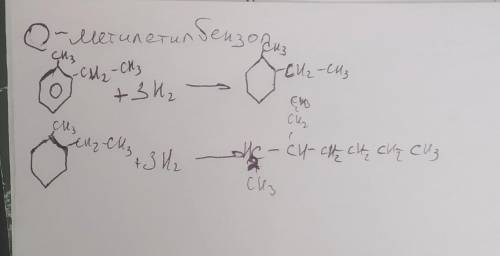 О-метилэтилбензол
CH3
CH2-CH3 + 3H2 → CH3
CH2-CH3
CH3
CH2
CH3
CH2-CH3 + 3H2 → HC - CH- CH2 CH2 CH2 CH3
CH3